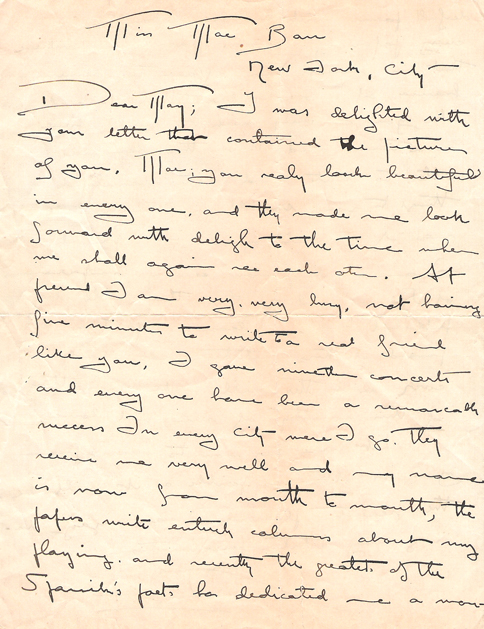 Miss Mae Barr
New York, City
Dear May; I was delighted with
your letter that contained the pictures
of you, Mae; you realy look beautiful
in every one, and they made me look
forward with deligh to the time when
we shall again see each oter. At
present I am very, very busy, not having
five minutes to write to a real friend
like you, I gave nineteen concerts
and every one have been a remarcable
success In every City were I go. They
receive me very well and my name
is now from mouth to mouth, the
papers write entire columns about my
playing. and recently the greatets of the
Spanish's poets has dedicated me a